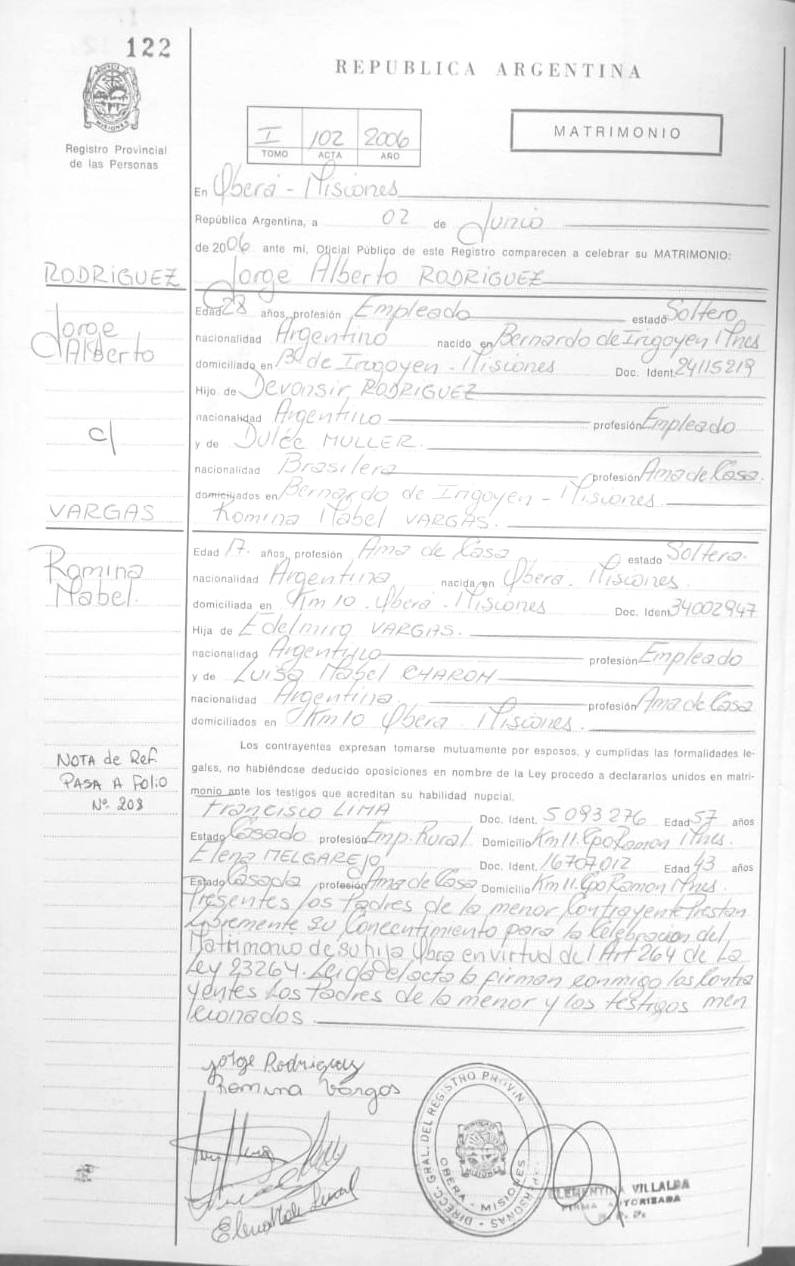 122
REPUBLICA ARGENTINA
MISIONES
Registro Provincial
de las Personas
I 102 2006
TOMO ACTA AÑO
MATRIMONIO
En Oberá - Misiones
República Argentina, a 02 de Junio
de 2006 ante mi, Oficial Público de este Registro comparecen a celebrar su MATRIMONIO:
RODRIGUEZ
Jorge Alberto RODRIGUEZ
Jorge
Alberto
c/
VARGAS
Romina
Mabel.
Edad 28 años, profesión Empleado estado Soltero
nacionalidad Argentino nacido en Bernardo de Irigoyen Mnes
domiciliado en Bdo de Irigoyen - Misiones Doc. Ident. 24115219
Hijo de Devonsir RODRIGUEZ
nacionalidad Argentino profesión Empleado
y de Dulce MULLER.
nacionalidad Brasilera profesión Ama de Casa.
domiciliados en Bernardo de Irigoyen - Misiones.
Romina Mabel VARGAS.
Edad 17. años, profesión Ama de Casa estado Soltera.
nacionalidad Argentina nacida en Oberá. Misiones.
domiciliada en Km 10. Oberá. Misiones Doc. Ident. 34002947
Hija de Edelmiro VARGAS.
nacionalidad Argentino profesión Empleado
y de Luisa Mabel CHAROM
nacionalidad Argentina profesión Ama de Casa
domiciliados en Km 10 Oberá Misiones.
Los contrayentes expresan tomarse mutuamente por esposos, y cumplidas las formalidades le-
gales, no habiéndose deducido oposiciones en nombre de la Ley procedo a declararlos unidos en matri-
monio ante los testigos que acreditan su habilidad nupcial.
NOTA de Ref.
PASA A Folio
Nº 208
Francisco LIMA Doc. Ident. 5093276 Edad 57 años
Estado Casado profesión Emp. Rural. Domicilio Km 11. Gpo Ramon Mnes.
Elena MELGAREJO Doc. Ident. 16707012 Edad 43 años
Estado Casada profesión Ama de Casa Domicilio Km 11. Gpo Ramon Mnes.
Presentes los Padres de la menor Contrayente Prestan
Libremente Su Concentimiento para la Celebracion del
Matrimonio de su hija Obra en virtud del Art 264 de La
Ley 23264. Leida el acta la firman conmigo los Contra
yentes Los Padres de la menor y los testigos men
cionados
Jorge Rodriguez
Romina Vargas
DIRECC. GRAL. DEL REGISTRO PROVIN. PERSONAS
MISIONES
OBERA - MISIONES
CLEMENTINA VILLALBA
FIRMA AUTORIZADA